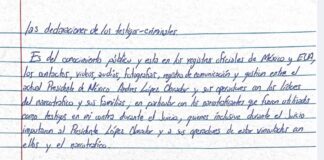 las declaraciones de los testigos-criminales
Es del conocimiento público y esta en los registros oficiales de México y EUA,
los contactos, videos, audios, fotografías, registro de comunicación y gestión entre el
actual Presidente de México Andres López Obrador y sus operadores con los líderes
del narcotráfico y sus familias, en particular con los narcotraficantes que fueron utilizados
como testigos en mi contra durante el Juicio, quienes inclusive durante el Juicio
imputaron al Presidente López Obrador y a sus operadores de estar vinculados con
ellos y el narcotráfico.